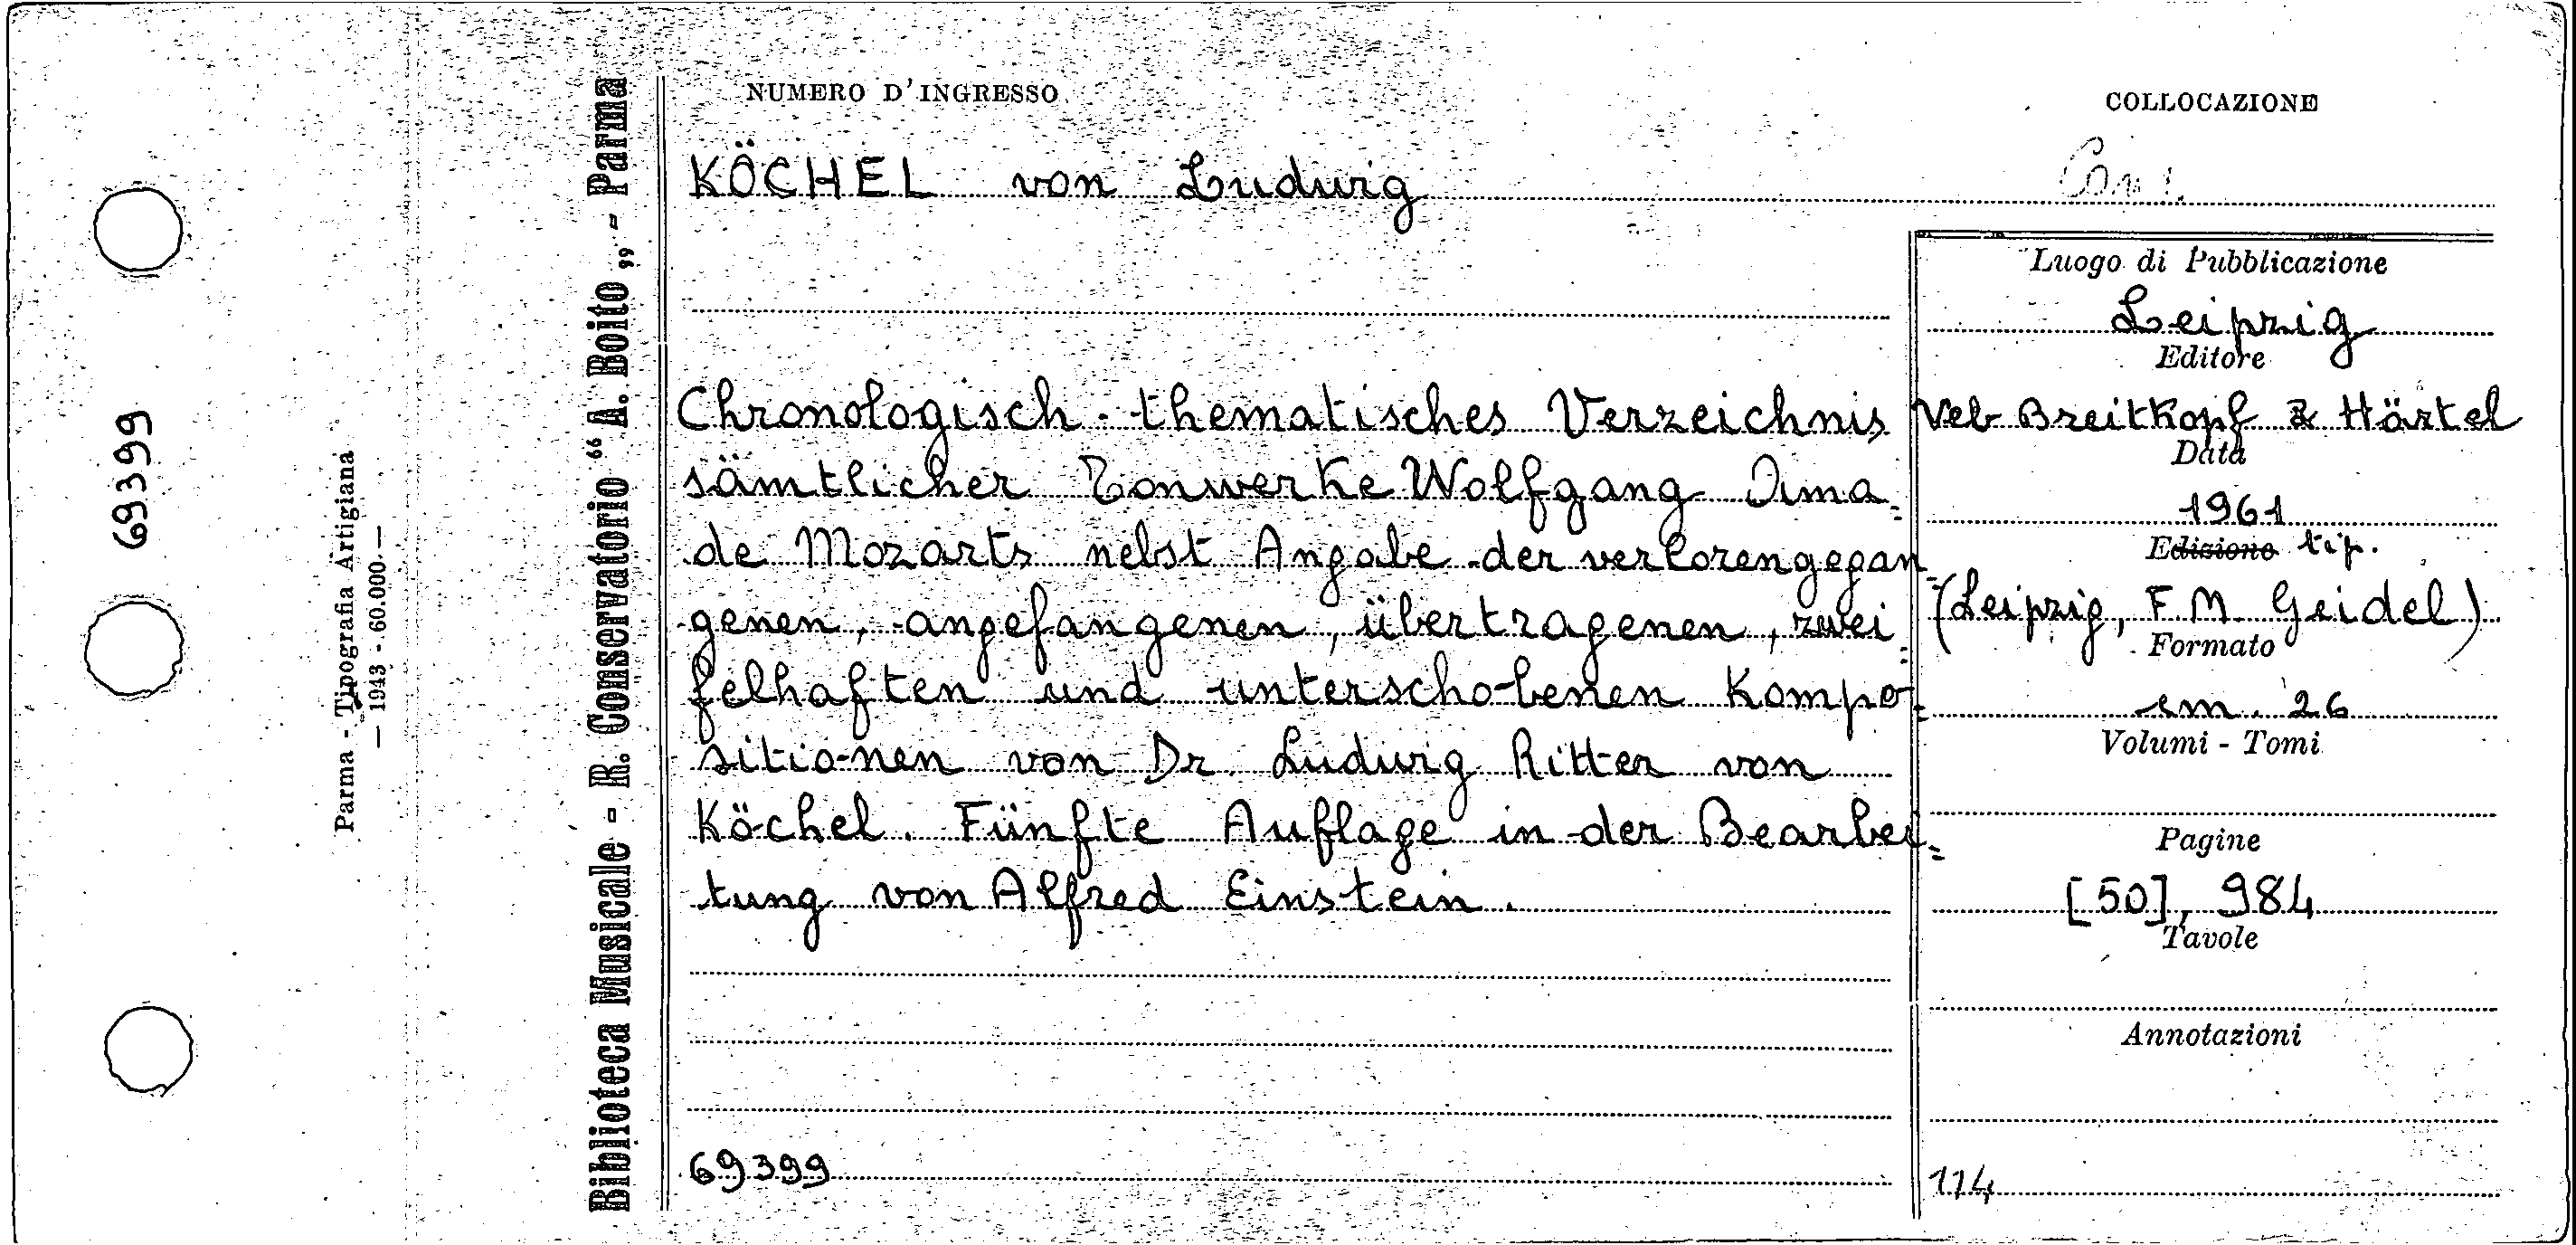 69399
Parma - Tipografia Artigiana
— 1943 - 60.000 —
Biblioteca Musicale - R. Conservatorio “ A. Boito „ - Parma
NUMERO D'INGRESSO
COLLOCAZIONE
KÖCHEL von Ludwig
Chronologisch-thematisches Verzeichnis
sämtlicher Tonwerke Wolfgang Ama=
de Mozarts nebst Angabe der verlorengegan=
genen, angefangenen, übertragenen, zwei=
felhaften und unterschobenen Kompo=
sitionen von Dr. Ludwig Ritter von
Köchel. Fünfte Auflage in der Bearbei=
tung von Alfred Einstein.
69399
Luogo di Pubblicazione
Leipzig
Editore
Veb Breitkopf & Härtel
Data
1961
Edizione tip.
(Leipzig, F.M. Geidel)
Formato
cm. 26
Volumi - Tomi
Pagine
[50], 984
Tavole
Annotazioni
114